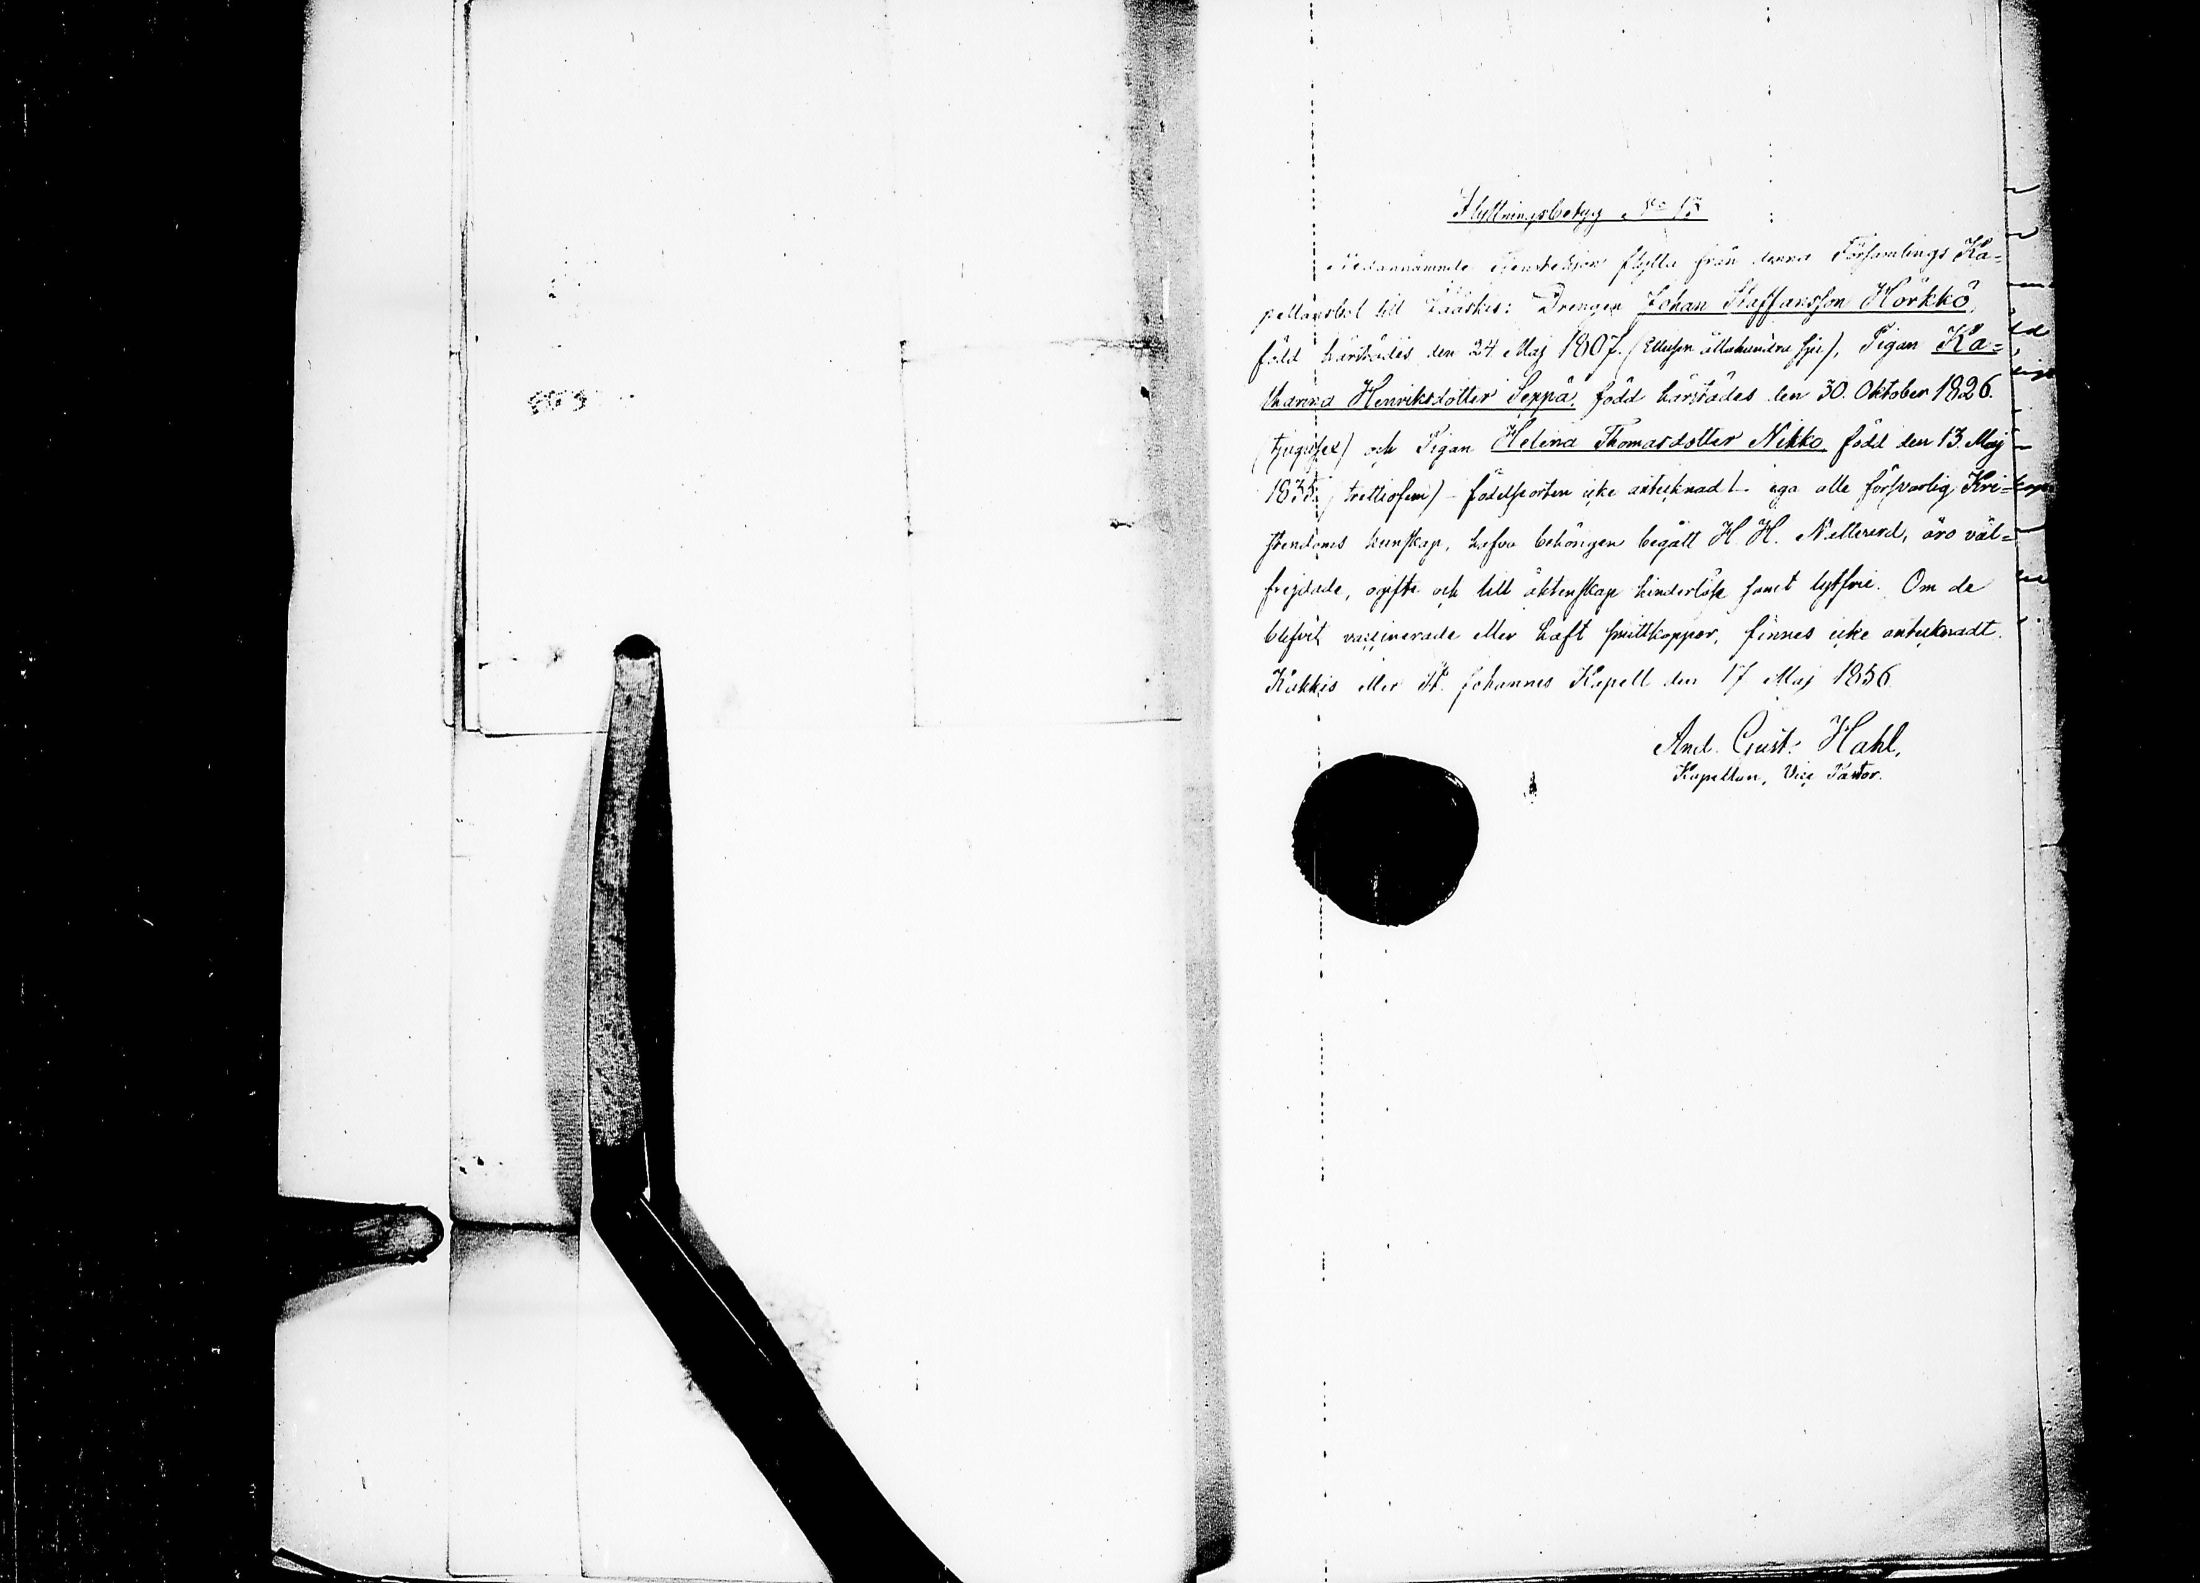 Flyttningsbetyg No 15
Nedannämnde tjenstehjon flytta från denna Församlings Ka-
pellansbol till Lääskis: Drengen Johan Staffansson Hörkkö,
född härstädes den 24 Maj 1807. (Ettusen åttahundra sju), Pigan Ka-
tharina Henriksdotter Seppä, född härstädes den 30. Oktober 1826.
(tjugusex) och Pigan Helena Thomasdotter Nikko född den 13. Maj
1835. (trettiofem) - födelseorten icke antecknad - ega alla försvarlig Kri-
stendoms kunskap, hafva behörigen begått H. H. Nattvard, äro väl-
frejdade, ogifta och till äktenskap hinderlösa samt lytfrie. Om de
blifvit vaccinerade eller haft smittkoppor, finnes icke antecknadt.
Kakkis eller St. Johannes Kapell den 17 Maj 1856
And. Gust. Hahl,
Kapellan, Vice Pastor.